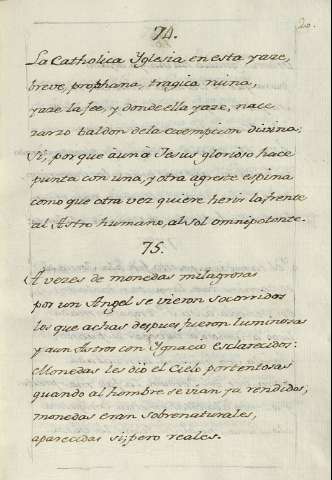 20.
74.
La Catholica Yglesia en esta yaze,
breve, prophana, tragica ruina,
yaze la fee, y donde ella yaze, nace
zarzo baldon de la exempcion divina;
Vi, porque aun a Jesus glorioso hace
punta con una, y otra agreste espina
como que otra vez quiere herir la frente
al Astro humano, al sol omnipotente.
75.
A vezes de monedas milagrosas
por un Angel se vieron socorridos
los que achas despues fueron luminosas
y aun Astros con Ignacio esclarecidos:
Monedas les dió el Cielo portentosas
quando al hombre se vian ya rendidos;
monedas eran sobrenaturales,
aparecidas si; pero reales.